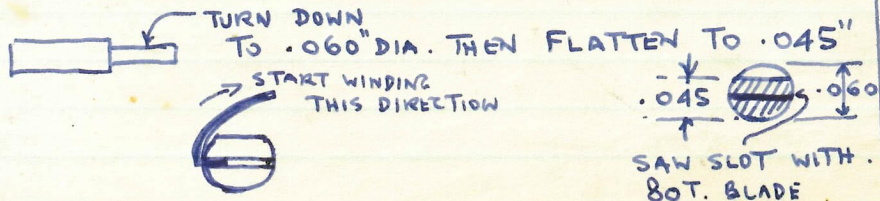 TURN DOWN
TO .060" DIA. THEN FLATTEN TO .045"
START WINDING
THIS DIRECTION
.045
.060
SAW SLOT WITH.
80T. BLADE